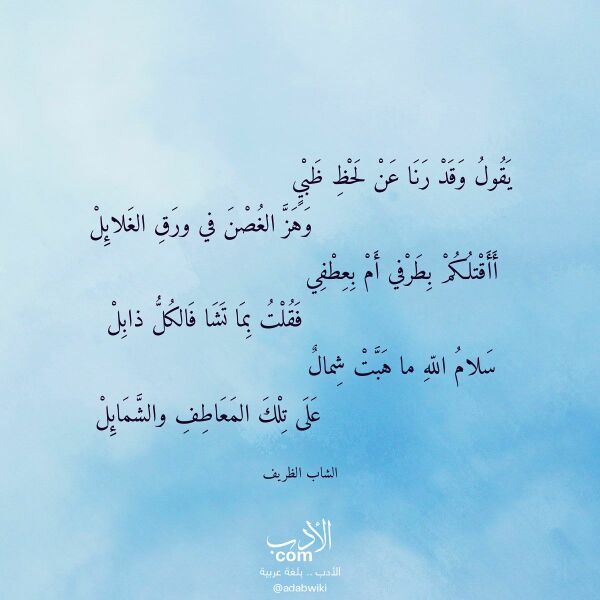 يَقُولُ وَقَدْ رَنَا عَنْ لَحْظِ ظَبْيٍ
وَهَزَّ الغُصْنَ في ورَقِ الغَلائِلْ
أَأَقْتلُكُمْ بِطَرْفي أَمْ بِعِطْفِي
فَقُلْتُ بِمَا تَشَا فَالكُلُّ ذابِلْ
سَلامُ اللّهِ ما هَبَّتْ شِمالٌ
عَلَى تِلْكَ المَعَاطِفِ والشَّمَايِلْ
الشاب الظريف
الأدب
com
الأدب .. بلغة عربية
@adabwiki